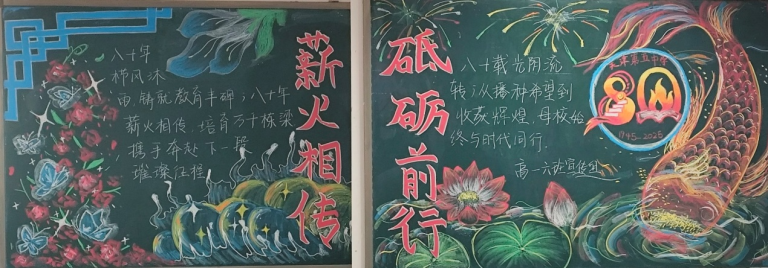 八十年
栉风沐
雨,铸就教育丰碑;八十年
薪火相传,培育万千栋梁
携手奔赴下一段
璀璨征程
薪火相传
砥砺前行
八十载光阴流
转;从播种希望到
收获辉煌,母校始
终与时代同行.
高一六班宣传组
天津第五中学
80
1945-2025